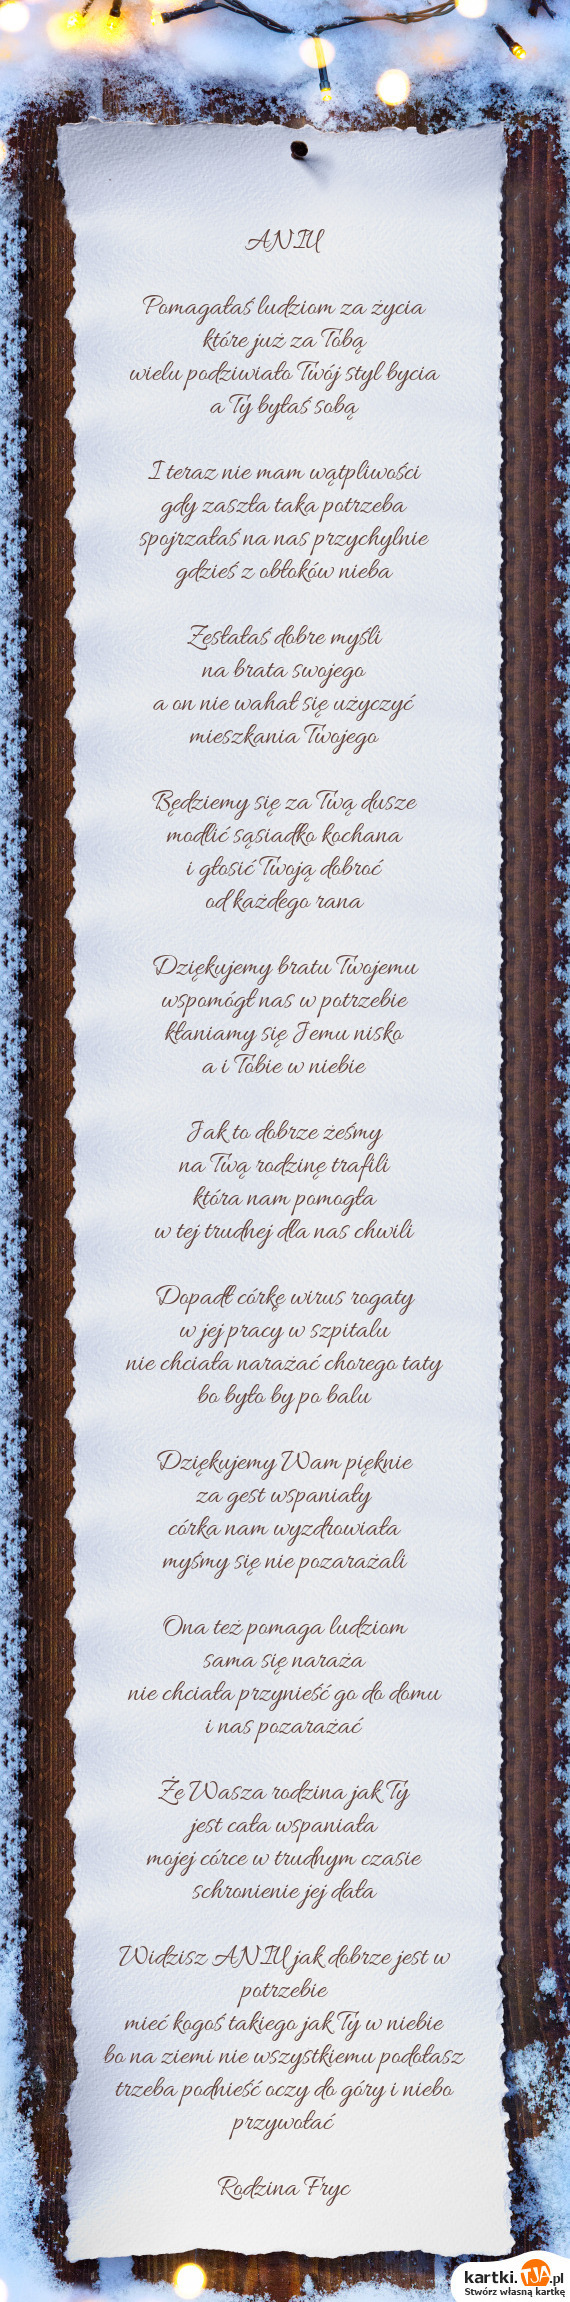 ANIU
Pomagałaś ludziom za życia
które już za Tobą
wielu podziwiało Twój styl bycia
a Ty byłaś sobą
I teraz nie mam wątpliwości
gdy zaszła taka potrzeba
spojrzałaś na nas przychylnie
gdzieś z obłoków nieba
Zesłałaś dobre myśli
na brata swojego
a on nie wahał się użyczyć
mieszkania Twojego
Będziemy się za Twą dusze
modlić sąsiadko kochana
i głosić Twoją dobroć
od każdego rana
Dziękujemy bratu Twojemu
wspomógł nas w potrzebie
kłaniamy się Jemu nisko
a i Tobie w niebie
Jak to dobrze żeśmy
na Twą rodzinę trafili
która nam pomogła
w tej trudnej dla nas chwili
Dopadł córkę wirus rogaty
w jej pracy w szpitalu
nie chciała narażać chorego taty
bo było by po balu
Dziękujemy Wam pięknie
za gest wspaniały
córka nam wyzdrowiała
myśmy się nie pozarażali
Ona też pomaga ludziom
sama się naraża
nie chciała przynieść go do domu
i nas pozarażać
Że Wasza rodzina jak Ty
jest cała wspaniała
mojej córce w trudnym czasie
schronienie jej dała
Widzisz ANIU jak dobrze jest w
potrzebie
mieć kogoś takiego jak Ty w niebie
bo na ziemi nie wszystkiemu podołasz
trzeba podnieść oczy do góry i niebo
przywołać
Rodzina Fryc
kartki.TJA.pl
Stwórz własną kartkę